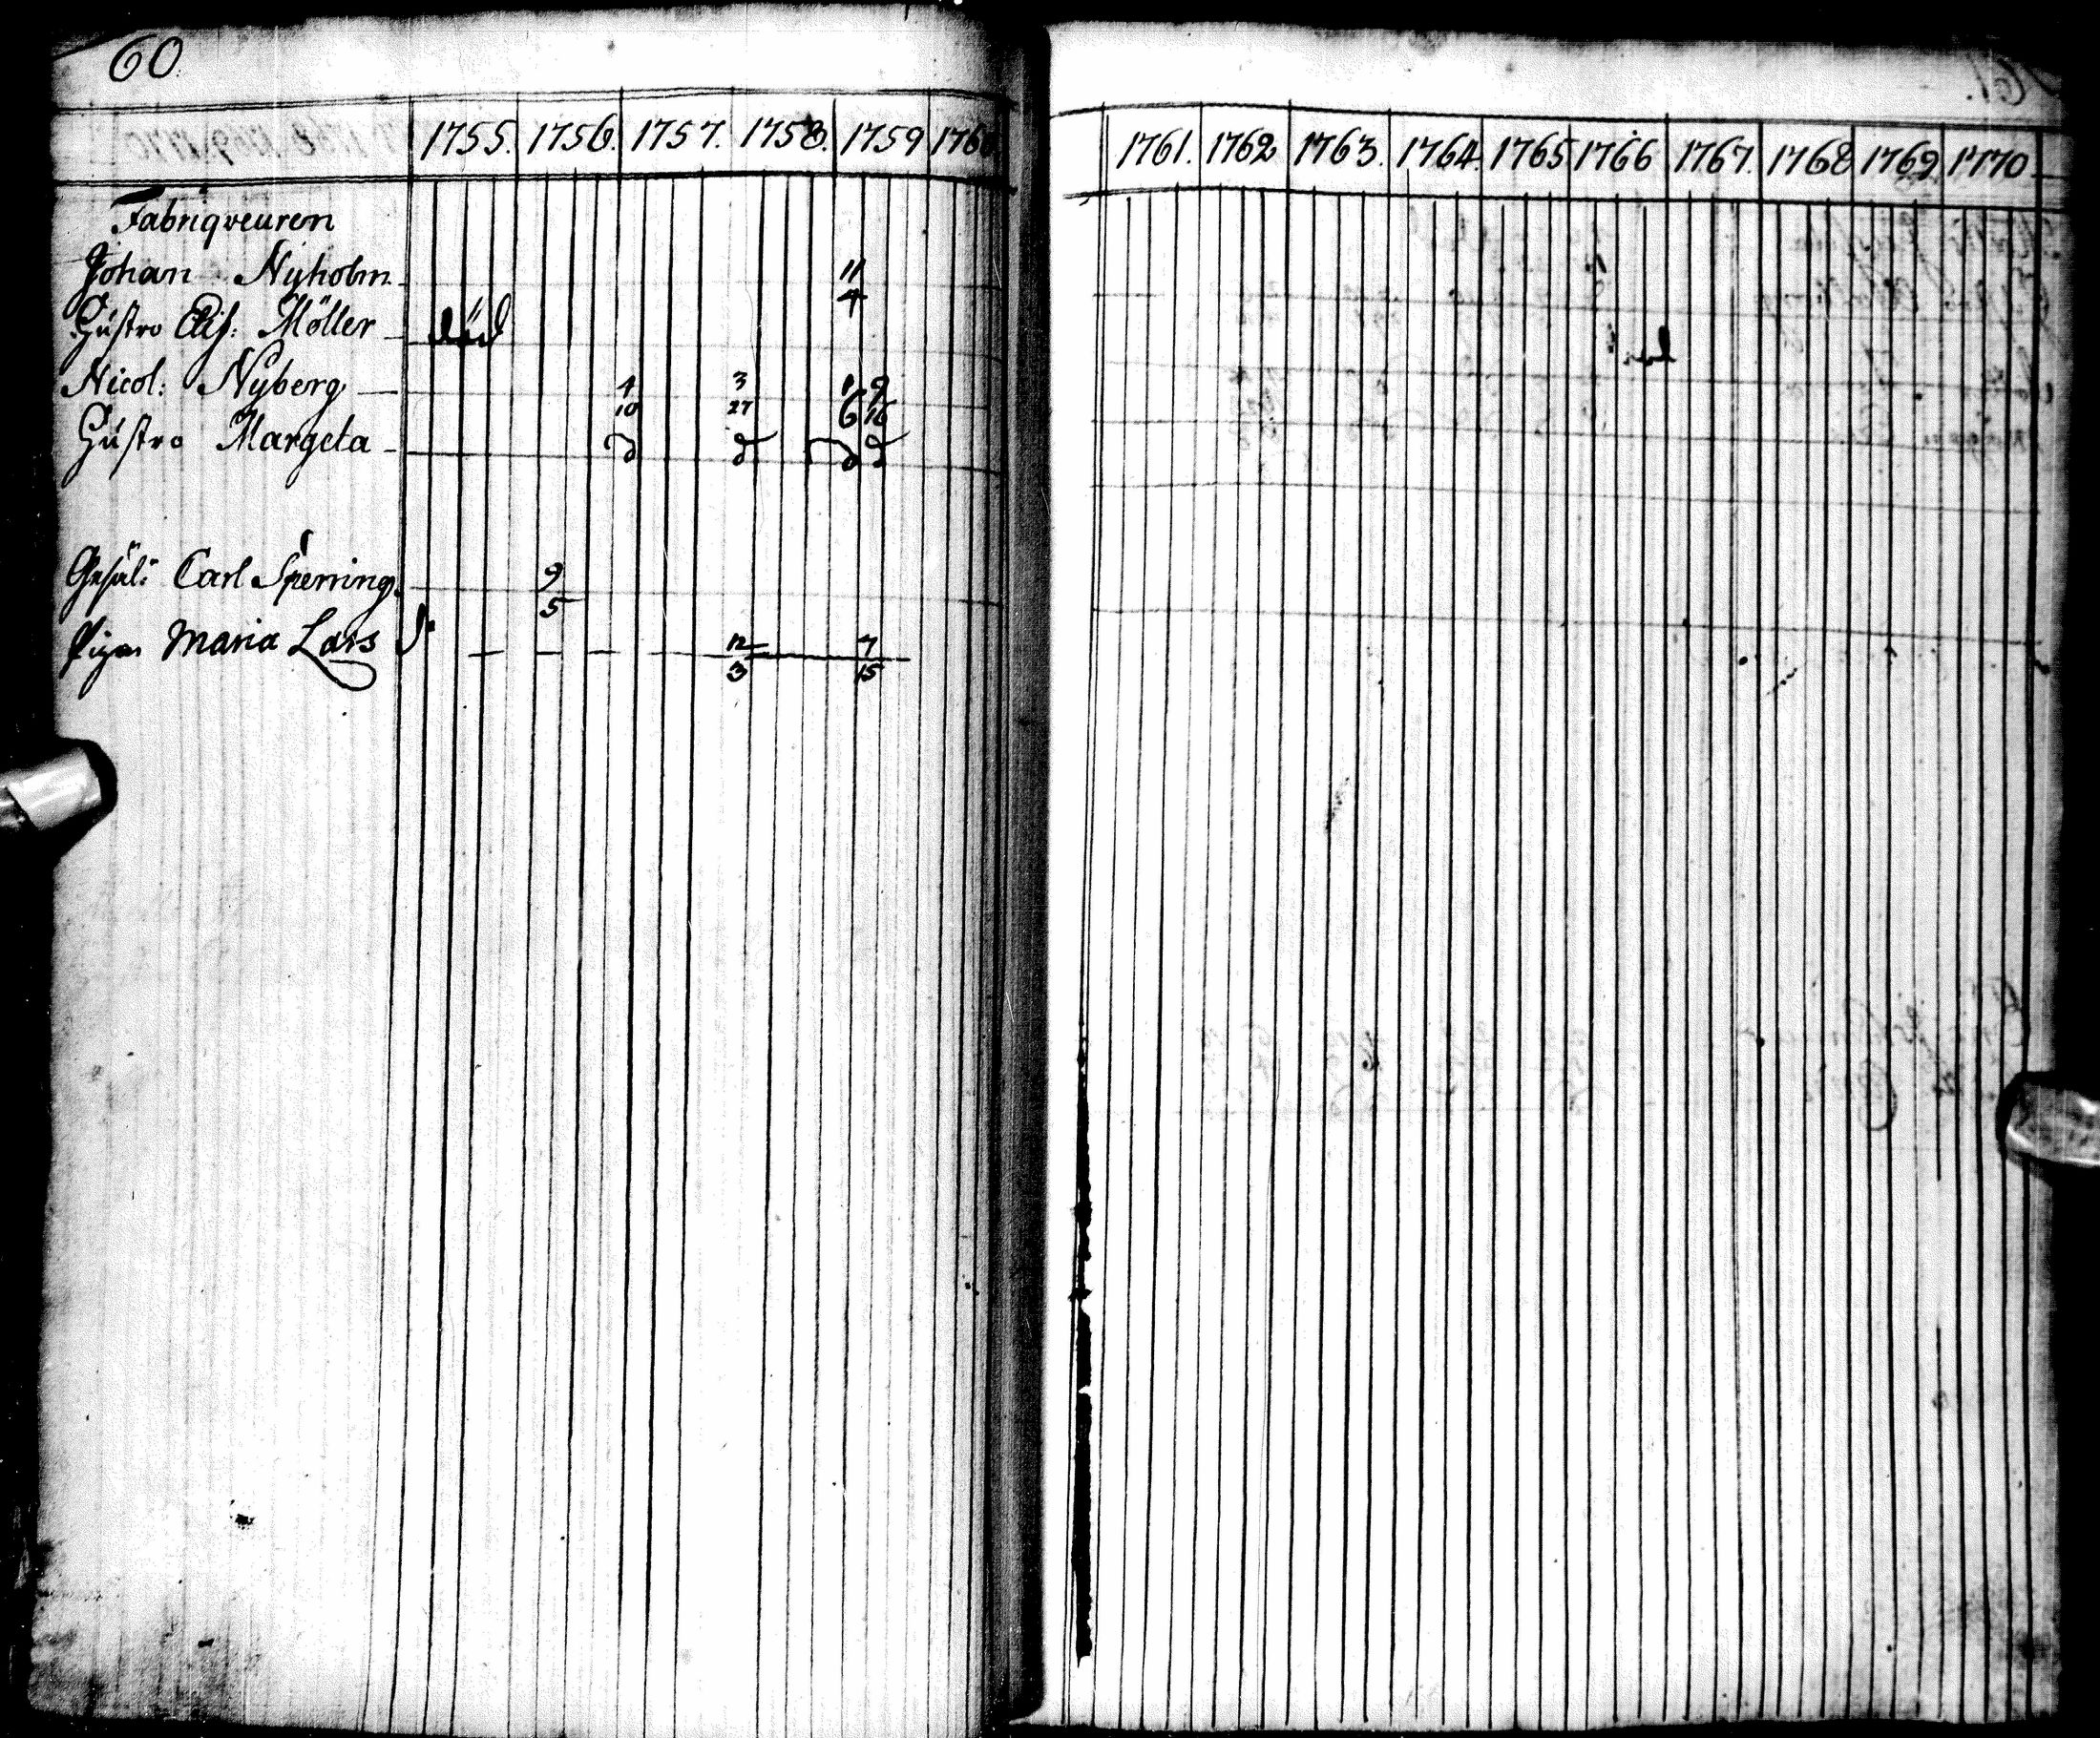 60.
1755. 1756. 1757. 1758. 1759 1760.
Fabriqveuren
Johan Nyholm 11
4
Hustro Elis: Möller död
Nicol: Nyberg 4 3 1 9
10 27 6 16
Hustro Margeta d d d d
Gesäl: Carl Sperring 9
5
Pigan Maria Lars d: 12 7
3 15
61.
1761. 1762 1763. 1764. 1765 1766 1767. 1768 1769. 1770